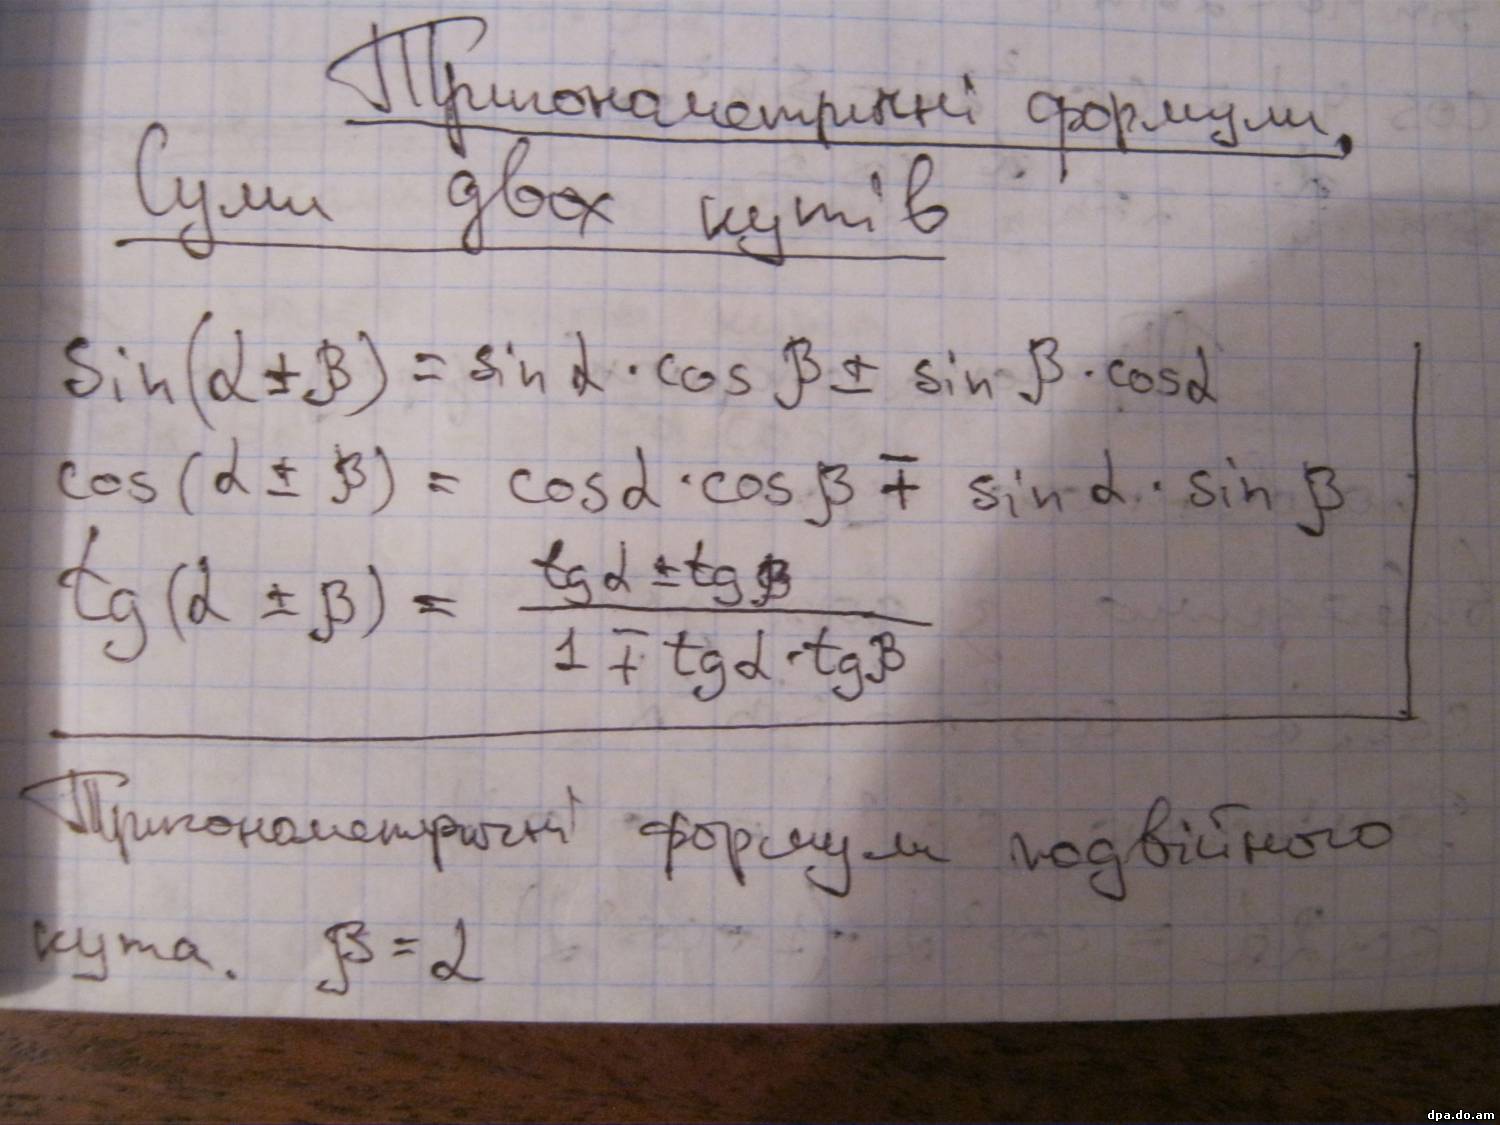 Тригонометричні формули.
Суми двох кутів
sin(α ± β) = sin α · cos β ± sin β · cos α
cos(α ± β) = cos α · cos β ∓ sin α · sin β
tg(α ± β) = (tg α ± tg β) / (1 ∓ tg α · tg β)
Тригонометричні формули подвійного
кута. β = α
dpa.do.am